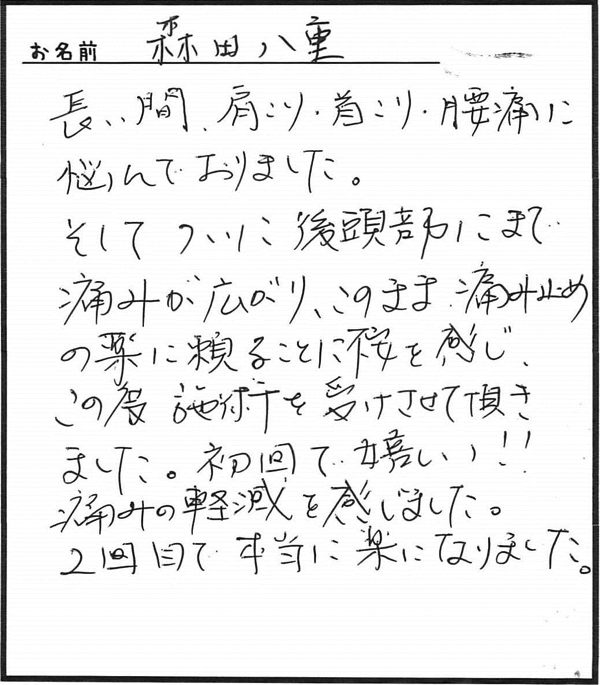 お名前 森田八重
長い間、肩こり・首こり・腰痛に
悩んでおりました。
そしてついに後頭部にまで
痛みが広がり、このまま痛み止め
の薬に頼ることに不安を感じ、
この度施術を受けさせて頂き
ました。初回で嬉しい!!
痛みの軽減を感じました。
2回目で本当に楽になりました。